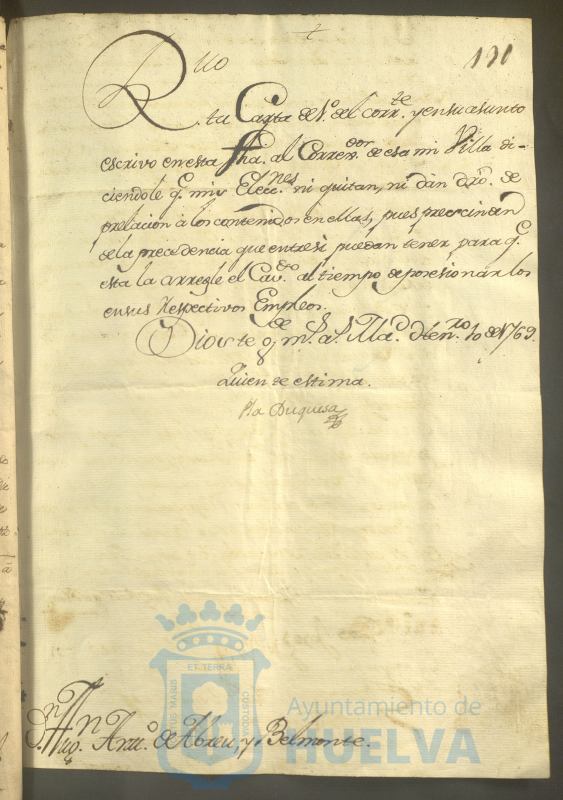 131
Rvo
tu Carta de 1º. del corr.te y en su asunto
escrivo en esta fha. al Corregor. de esa mi Villa di-
ciendole q.e mis Elec.nes ni quitan, ni dàn dro. de
prelacion à los contenidos en ellas, pues preescinden
de la precedencia que entre sì puedan tener para q.e
esta la arregle el Cav.do al tiempo de posesionarlos
en sus Respectivos Empleos.
Dios te g.de m.s a.s Villa.d de Hen.ro 10 de 1769.
Quien te estima.
Pla Duquesa
D.n Aug.n Antt.o de Abreu, y Belmonte.
ET TERRA
PORTUS MARIS
CUSTODIA
Ayuntamiento de
HUELVA